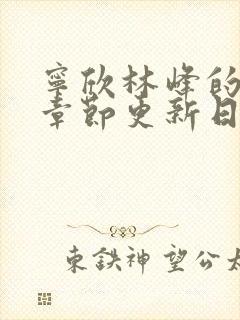 寧欣林峰的
章節更新日
束鉄神望公太